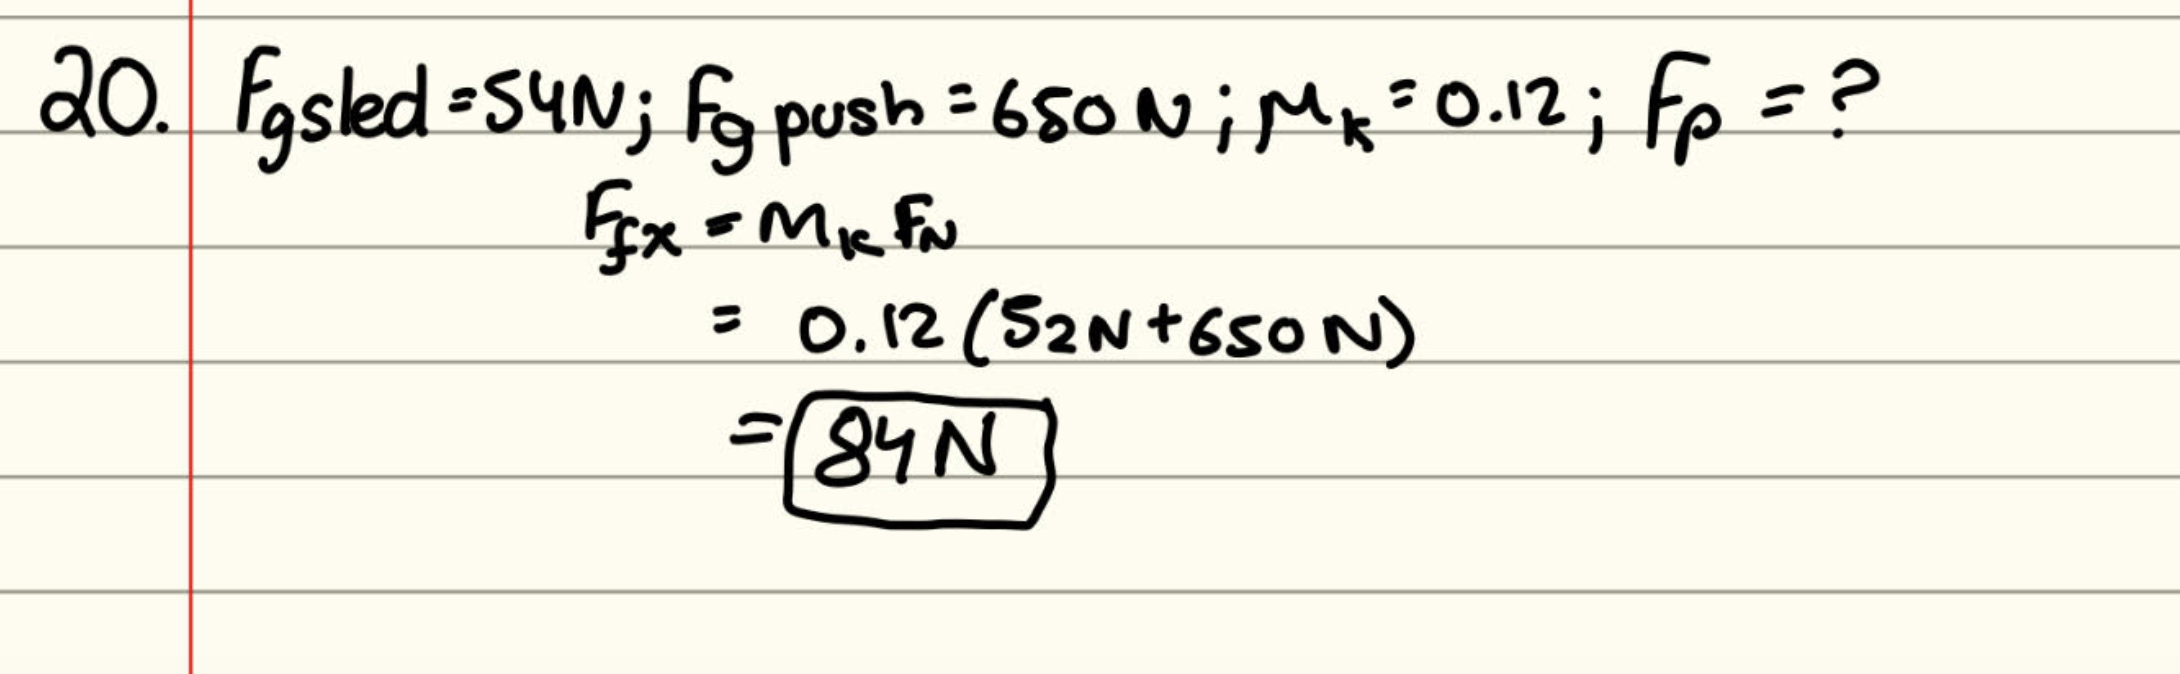 20. Fgsled = 54N; Fg push = 650 N; μk = 0.12; Fp = ?
Ffx = Mk FN
= 0.12 (52N + 650 N)
= 84 N